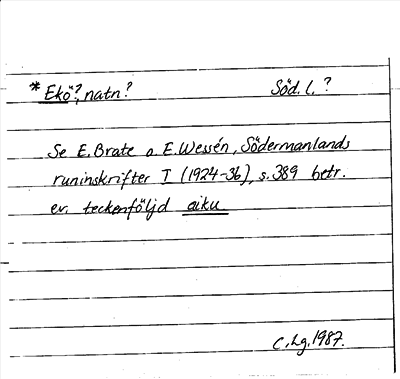 *Ekö?, natn? Söd. l. ?
Se E. Brate o. E. Wessén, Södermanlands
runinskrifter I (1924-36), s. 389 betr.
ev. teckenföljd aiku
C. Lg. 1987.